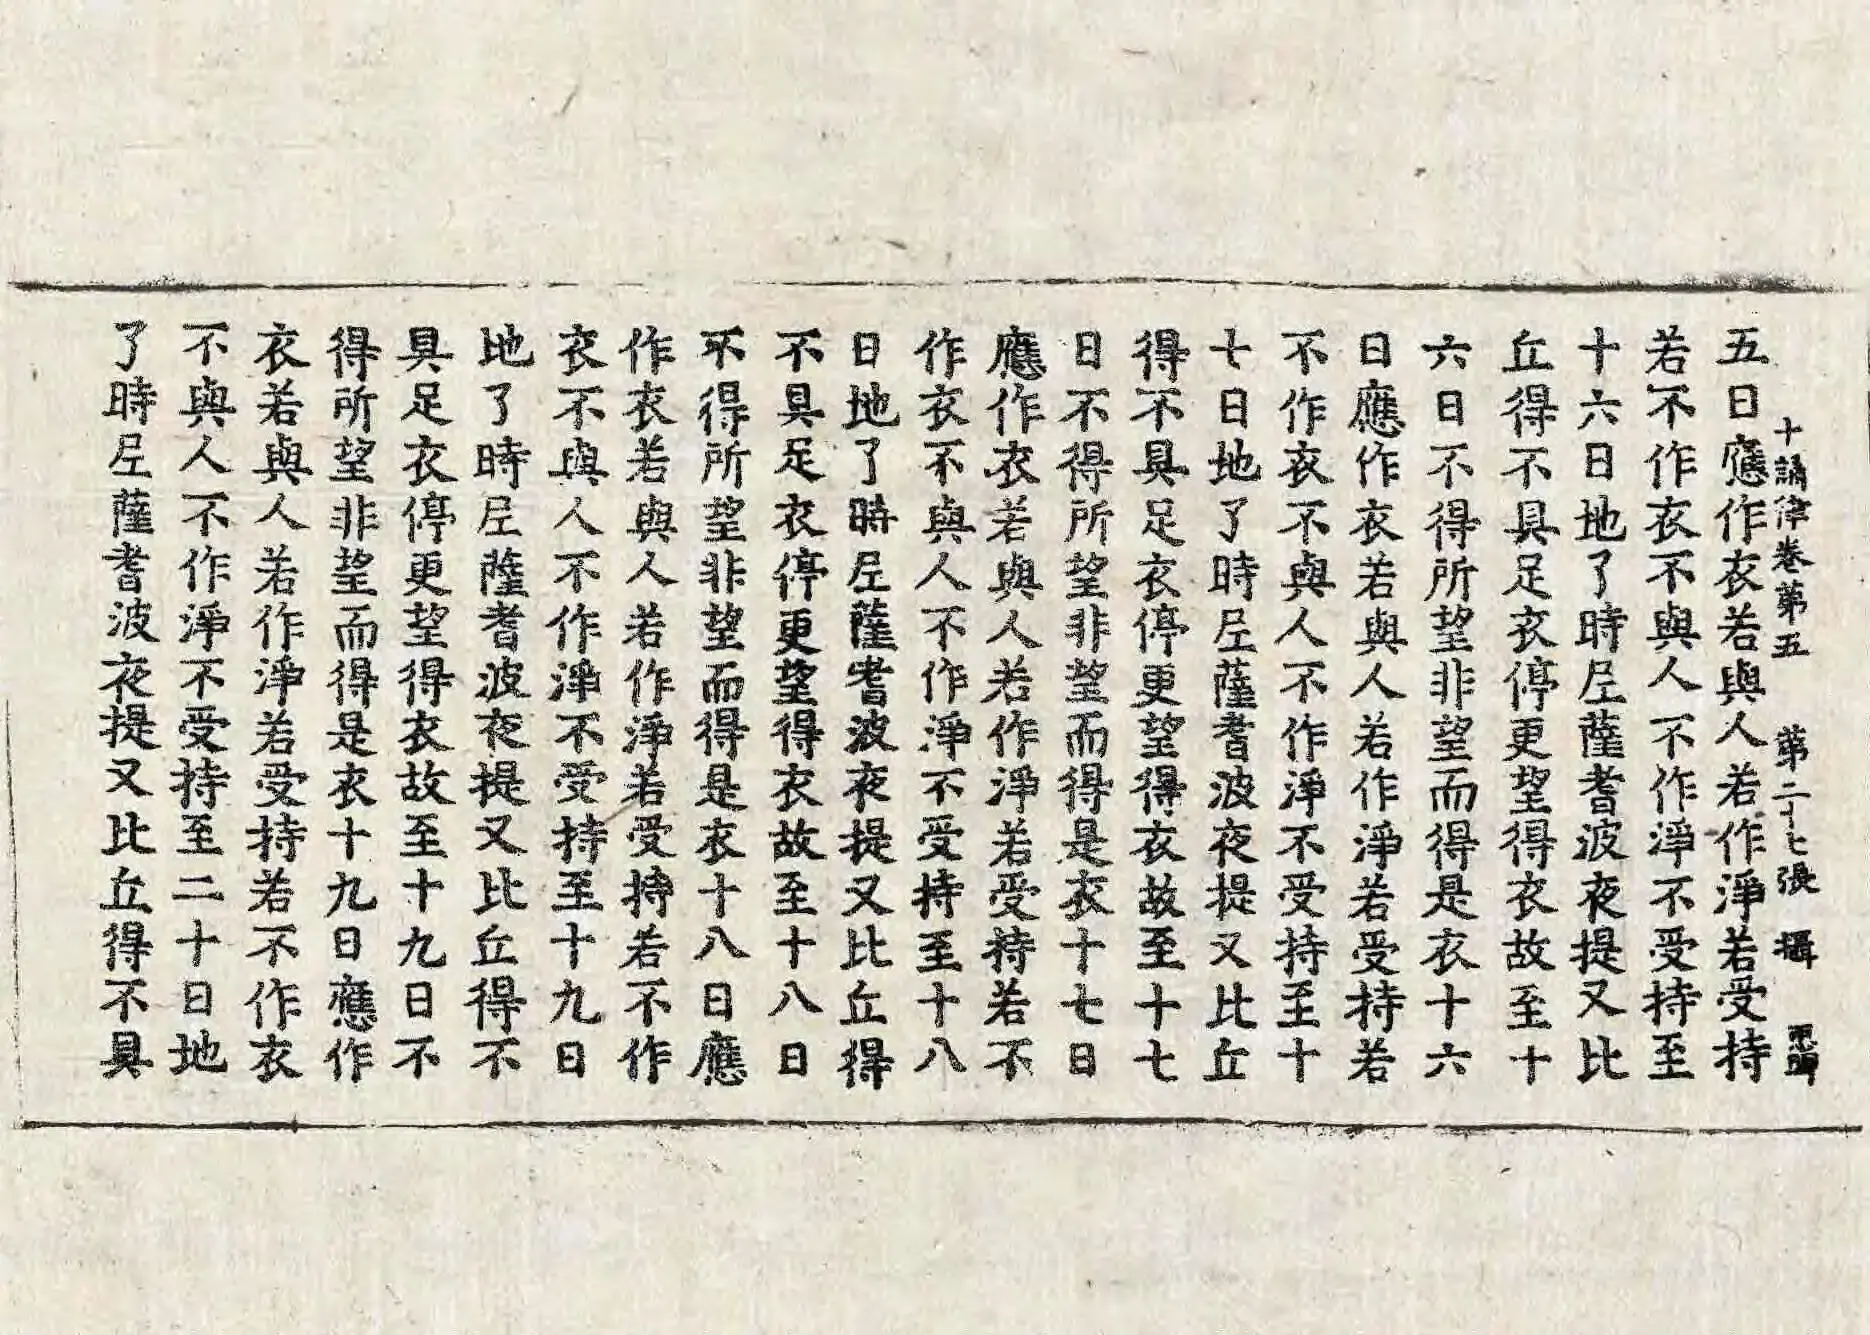 十誦律卷第五 第二十七張 攝
五日應作衣若與人若作淨若受持
若不作衣不與人不作淨不受持至
十六日地了時尼薩耆波夜提又比
丘得不具足衣停更望得衣故至十
六日不得所望非望而得是衣十六
日應作衣若與人若作淨若受持若
不作衣不與人不作淨不受持至十
七日地了時尼薩耆波夜提又比丘
得不具足衣停更望得衣故至十七
日不得所望非望而得是衣十七日
應作衣若與人若作淨若受持若不
作衣不與人不作淨不受持至十八
日地了時尼薩耆波夜提又比丘得
不具足衣停更望得衣故至十八日
不得所望非望而得是衣十八日應
作衣若與人若作淨若受持若不作
衣不與人不作淨不受持至十九日
地了時尼薩耆波夜提又比丘得不
具足衣停更望得衣故至十九日不
得所望非望而得是衣十九日應作
衣若與人若作淨若受持若不作衣
不與人不作淨不受持至二十日地
了時尼薩耆波夜提又比丘得不具